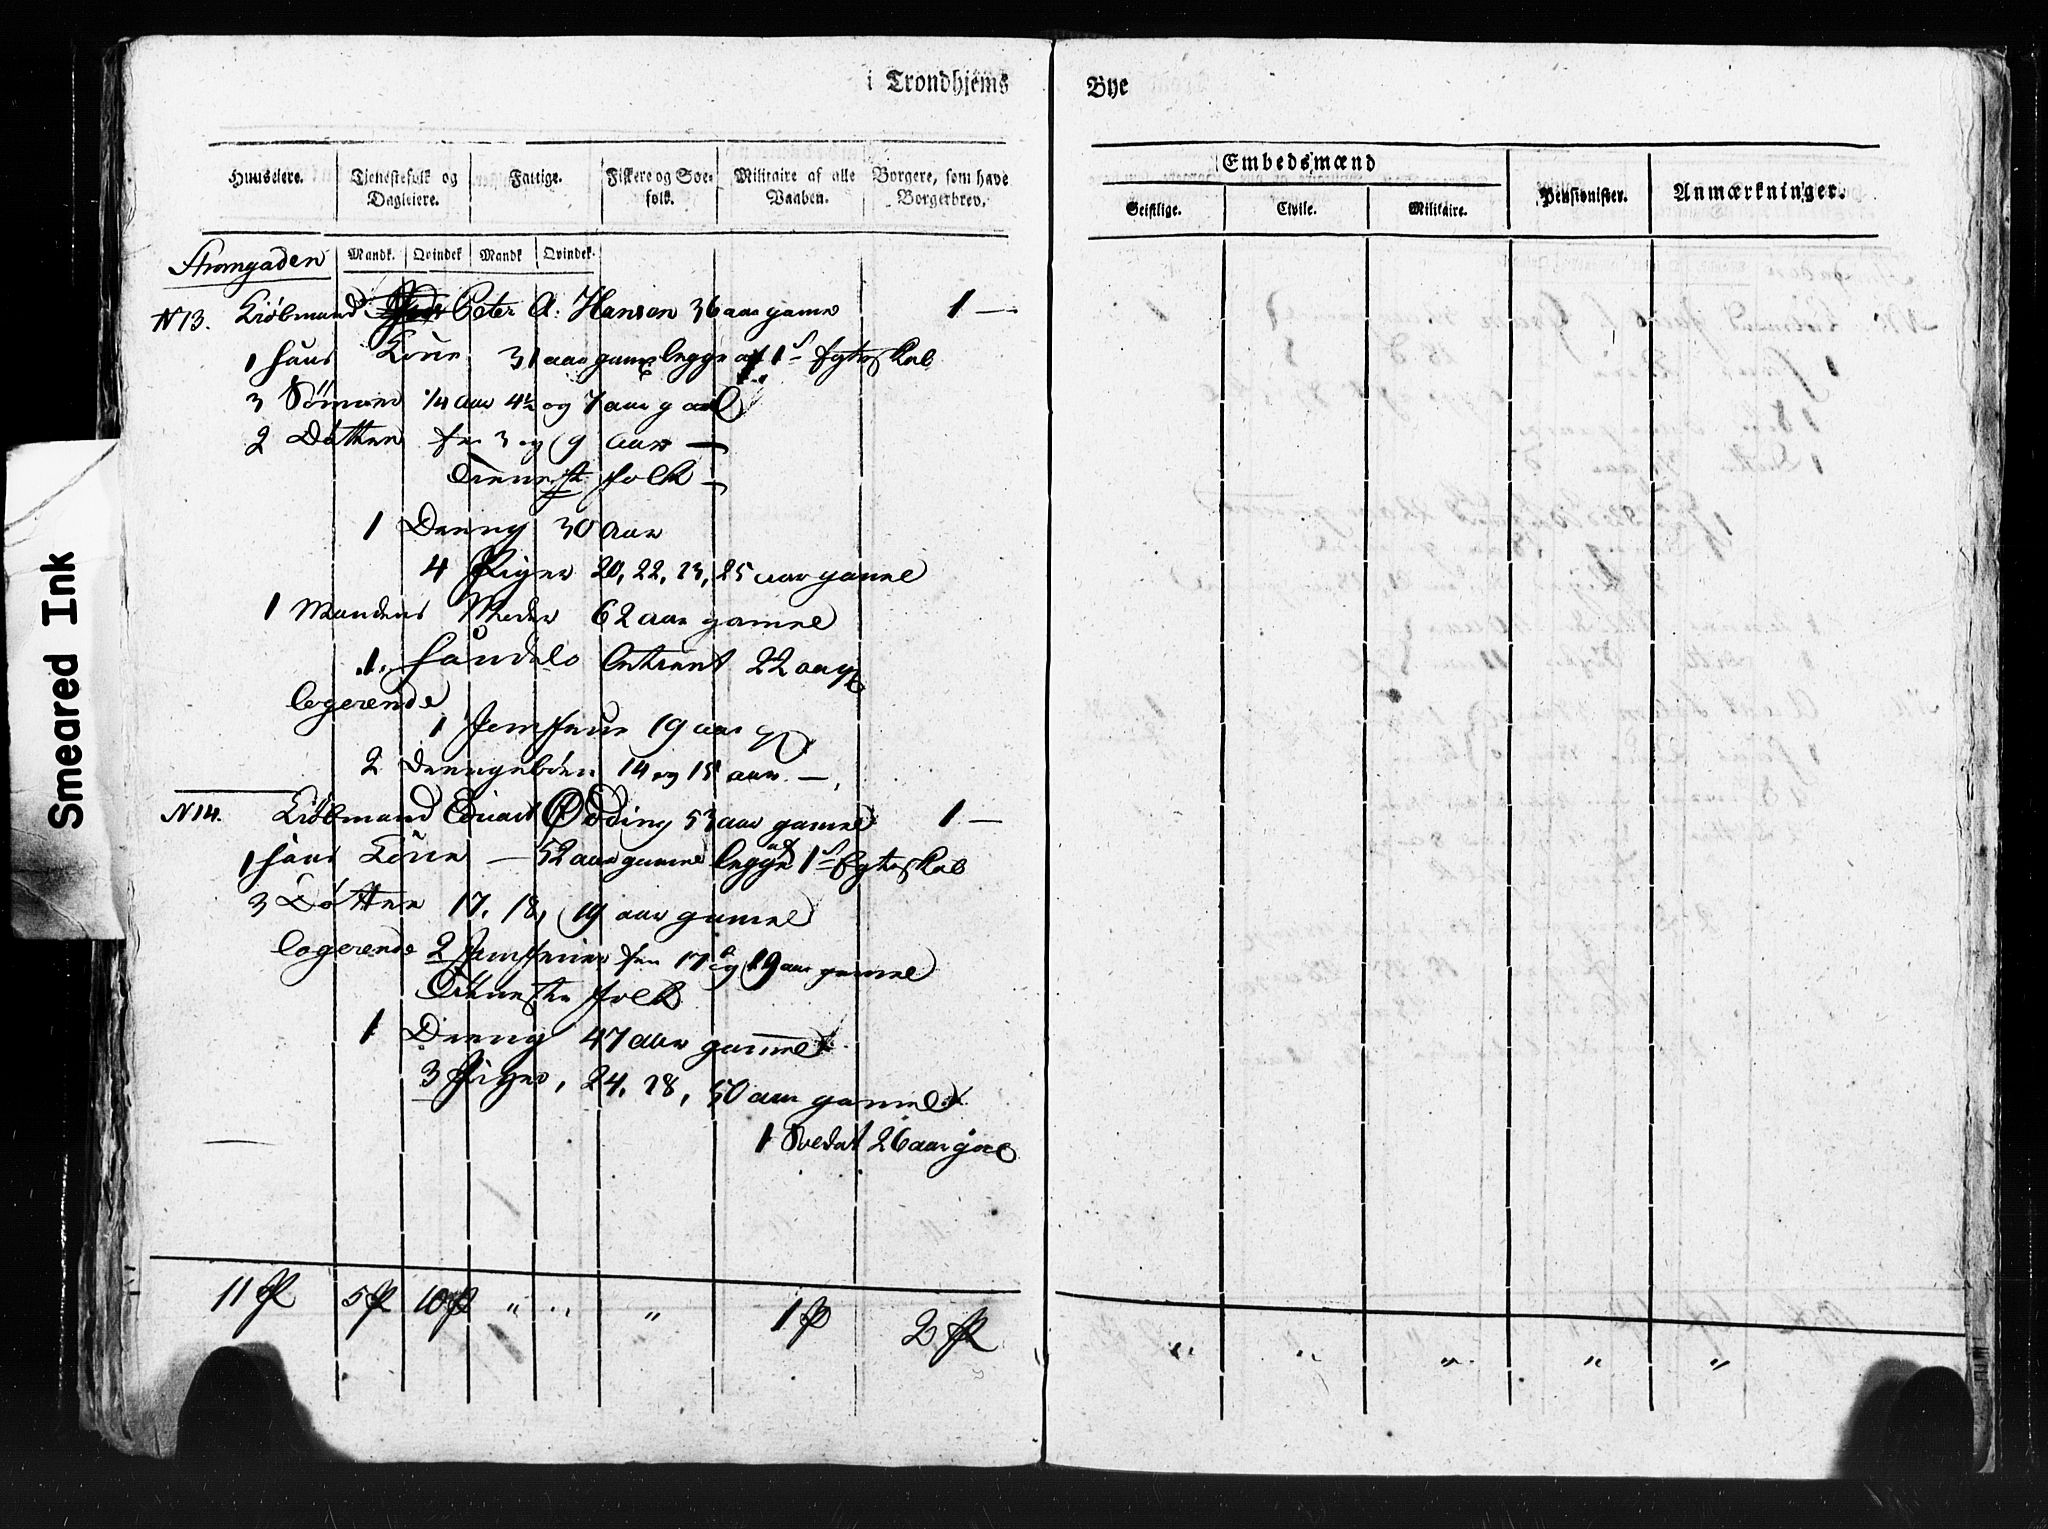 i Trondhjems Bye
Huuseiere. Tjenestefolk og Dagleiere. Fattige. Fiskere og Søefolk. Militaire af alle Vaaben. Borgere, som have Borgerbrev.
Embedsmænd Pensionister. Anmærkninger.
Geistlige. Civile. Militaire.
Mandk. Qvindek Mandk Qvindek.
Strandgaden
N 13. Kiøbmand Peter A: Hansen 36 aar gamel 1 —
1 hans Kone 31 aar gamel begge af 1s Egteskab
3 Sønner 1/4 aar 4½ og 7 aar gael
2 Døttre fra 3 og 9 aar —
Tieneste folk —
1 Dreng 30 aar
4 Piger 20, 22, 23, 25 aar gamel
1 Mandens Moder 62 aar gamel
1. Handels betient 22 aar
logerende
1 Jomfrue 19 aar
2 Drengebørn 14 og 15 aar —
N 14. Kiøbmand Edvart Odding 53 aar gamel 1 —
1 hans Kone — 52 aar gamel begge af 1s Egteskab
3 Døttre 17, 18, 19 aar gamel
logerende 2 Jomfruer fra 17 og 19 aar gamel
Tieneste folk
1 Dreng 47 aar gamel
3 Piger, 24, 28, 50 aar gamel
1 Soldat 26 aar gael
11 P 5 P 10 P " " " 1 P 2 P " " " " "
Smeared Ink